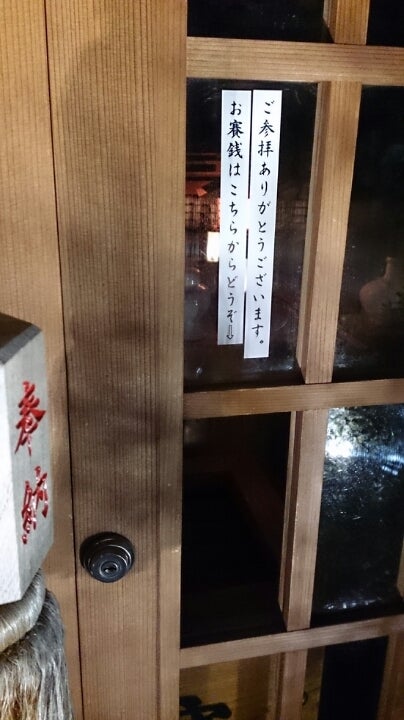 ご参拝ありがとうございます。
お賽銭はこちらからどうぞ⇩
奉納